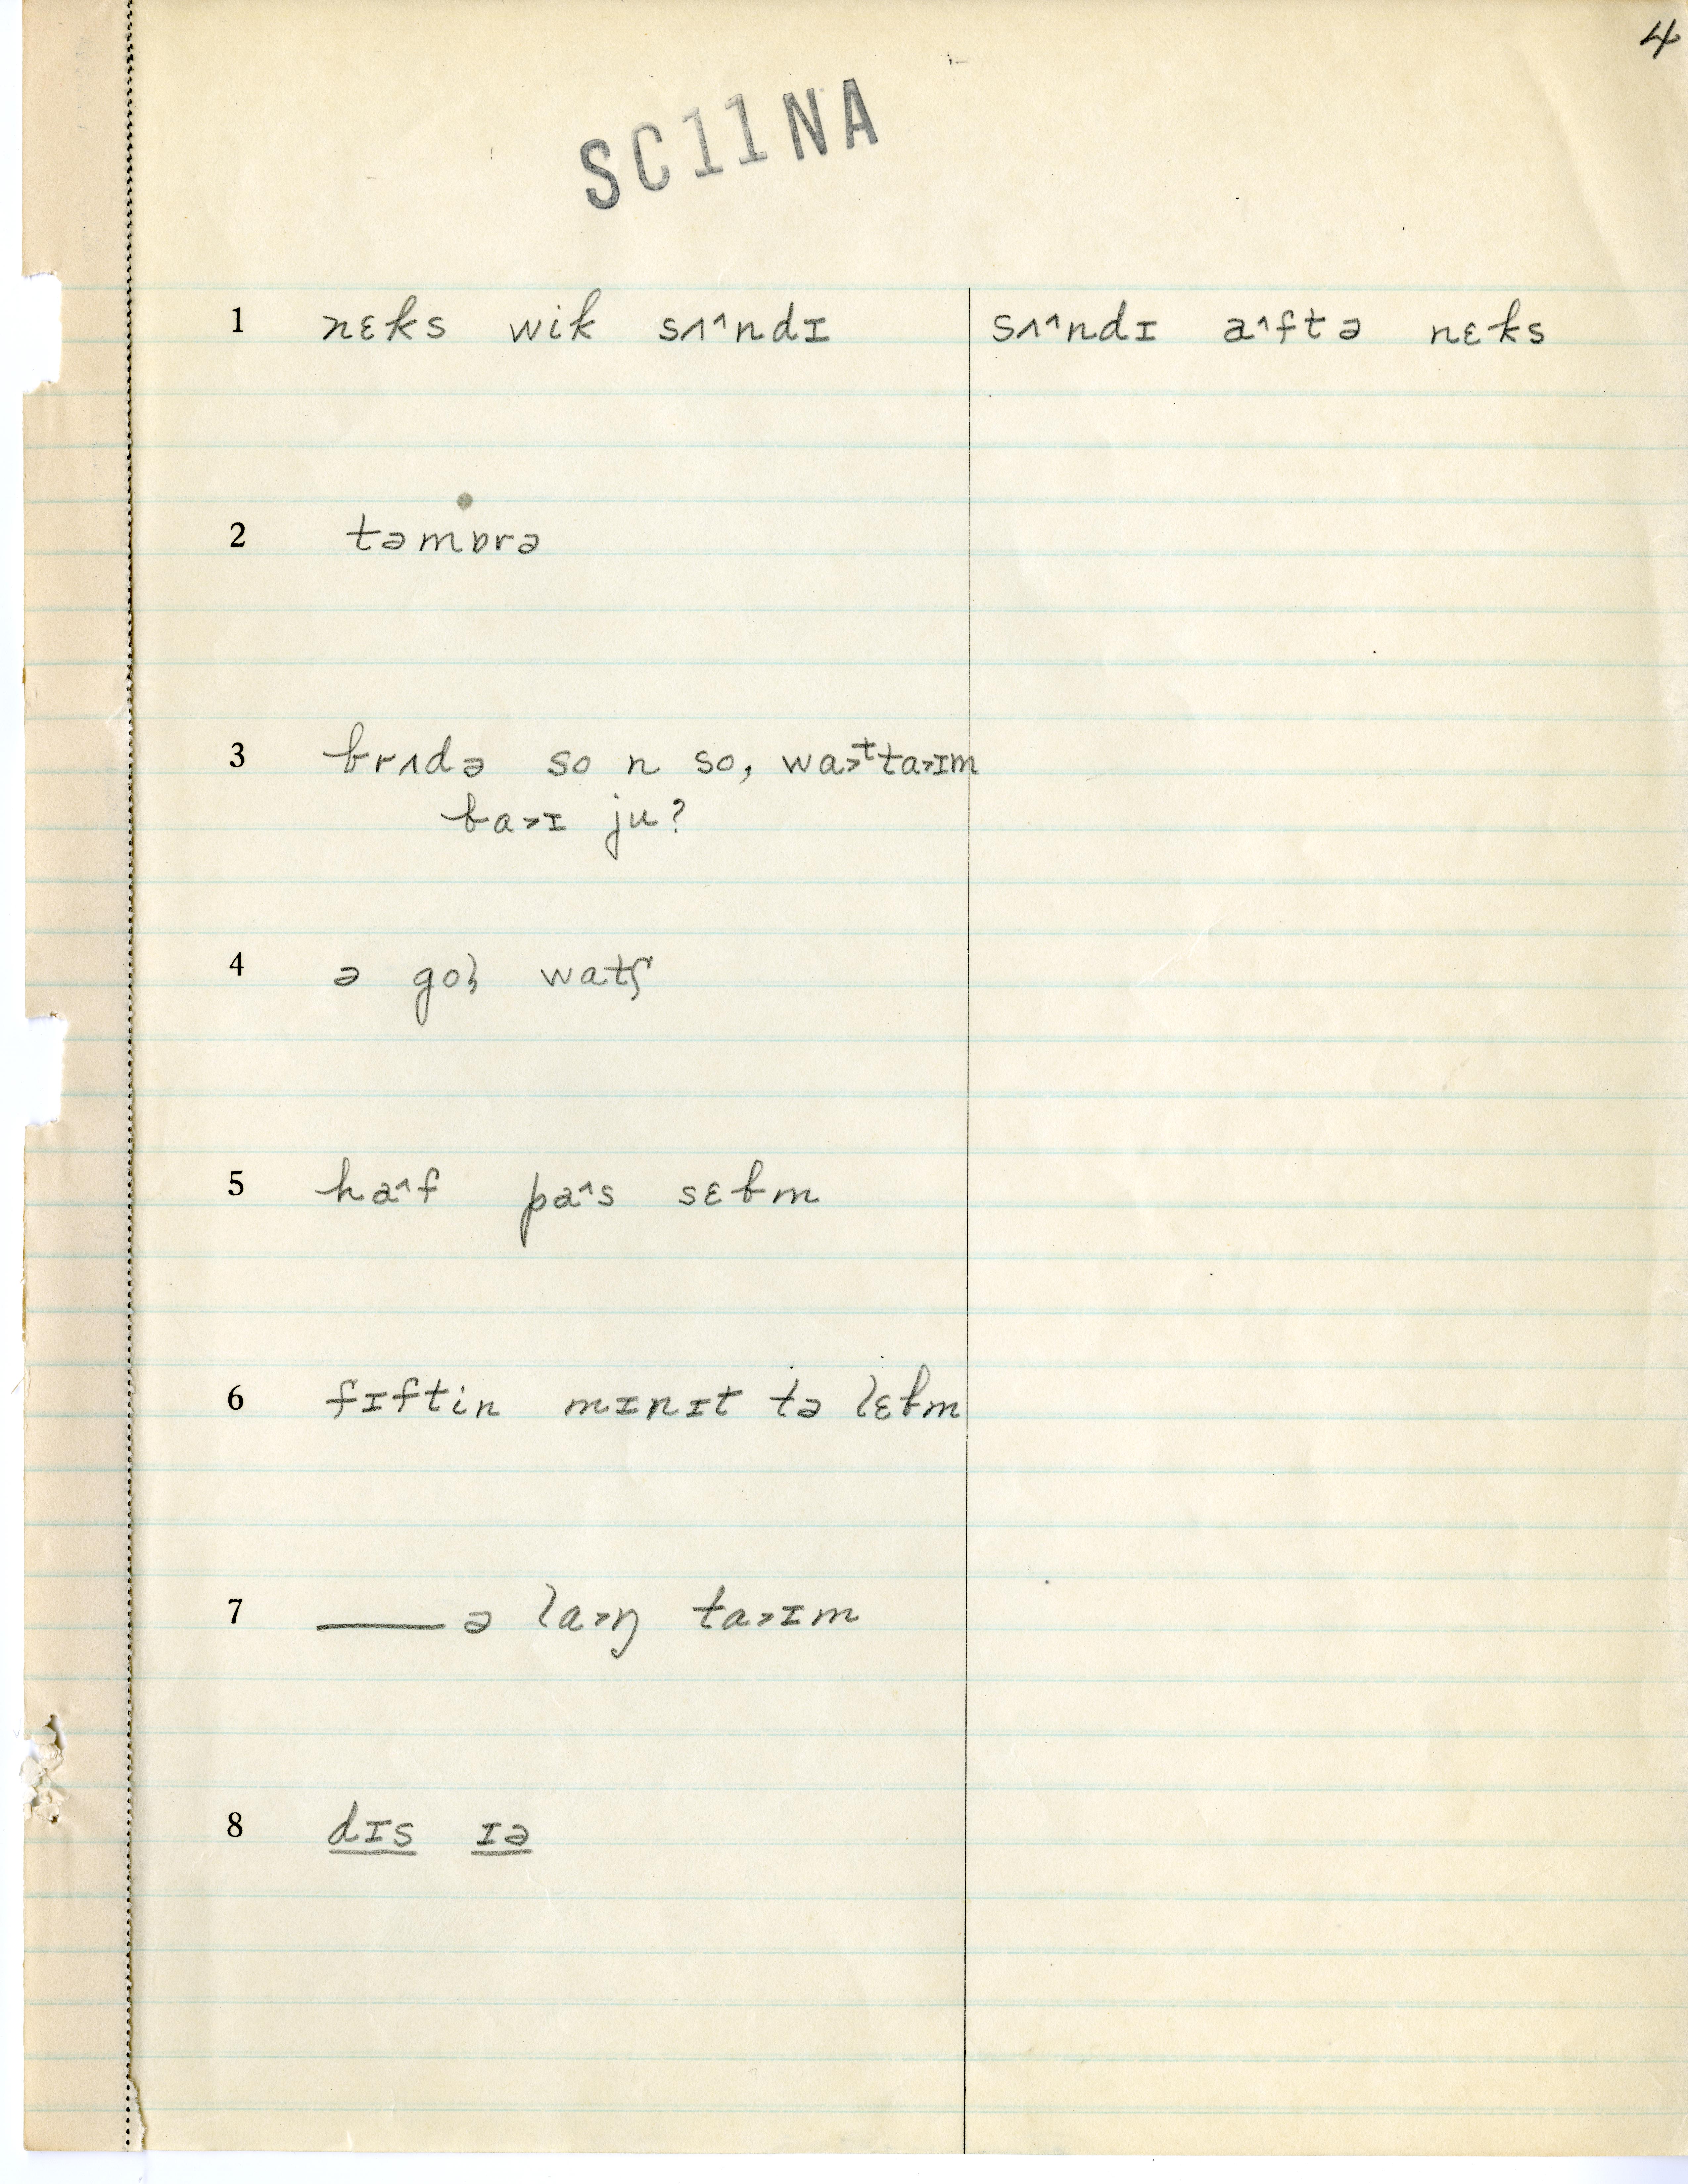 4
SC11NA
1 nɛks wik sʌ^ndɪ sʌ^ndɪ a^ftə nɛks
2 təmɒrə
3 brʌdə so n so, wa>ᵗta>ɪm
ba>ɪ ju?
4 ə gol watʃ
5 ha^f pa^s sɛbm
6 fɪftin mɪnɪt tə lɛbm
7 —— ə la>ŋ ta>ɪm
8 dɪs ɪə